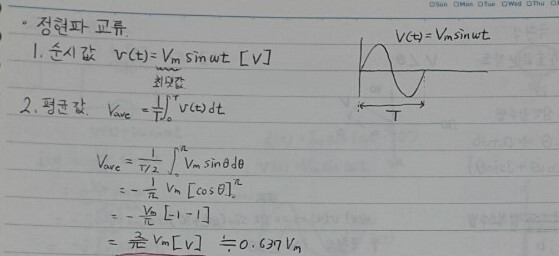 □Sun □Mon □Tue □Wed □Thu
· 정현파 교류
1. 순시값 v(t) = Vm sinωt [V]
최댓값
V(t) = Vm sinωt
T
2. 평균값 Vave = 1/T ∫₀ᵀ v(t)dt
Vave = 1/(T/2) ∫₀^π Vm sinθdθ
= - 1/π Vm [cosθ]₀^π
= - Vm/π [-1-1]
= 2/π Vm [V] ≒ 0.637Vm